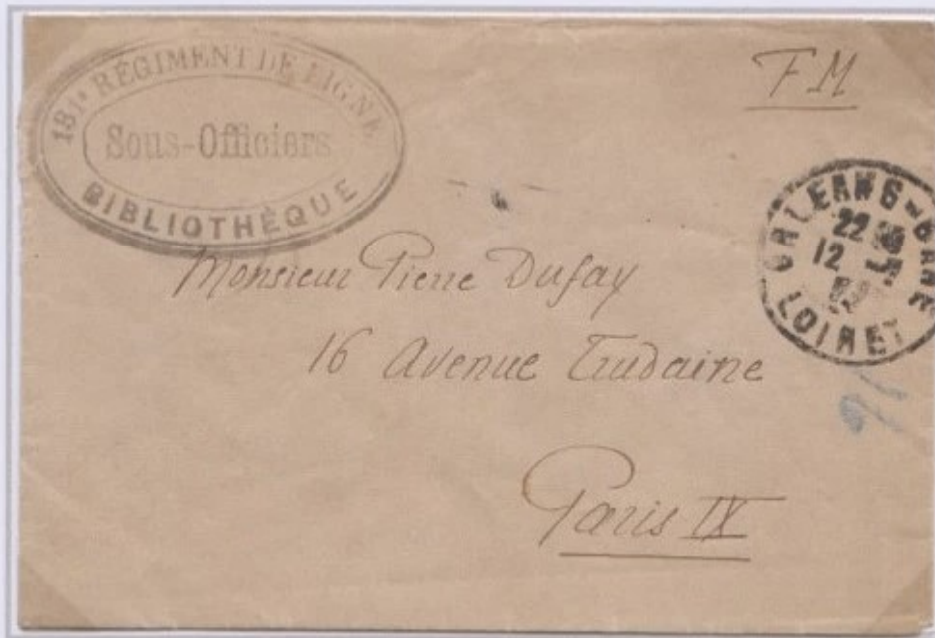 131e RÉGIMENT DE LIGNE
Sous-Officiers
BIBLIOTHÈQUE
FM
ORLEANS-GARE
22
12
LOIRET
Monsieur Pierre Dufay
16 Avenue Trudaine
Paris IX